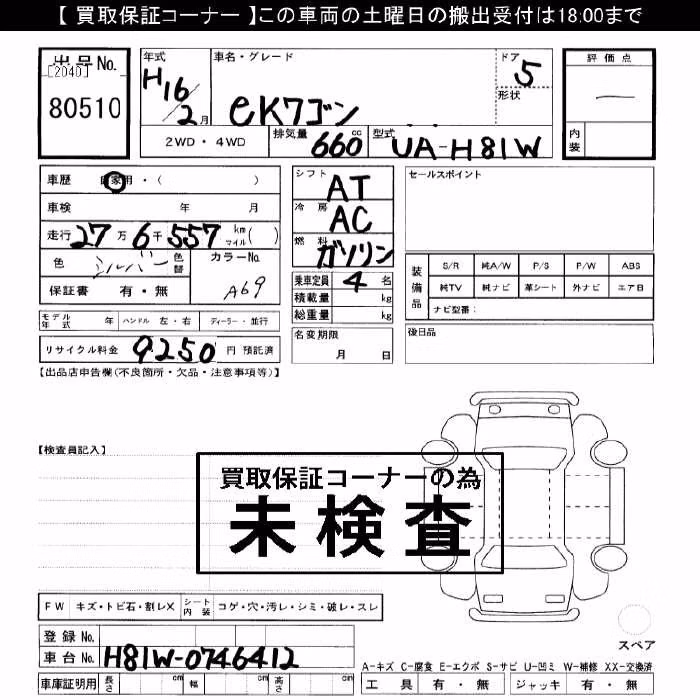 【 買取保証コーナー 】この車両の土曜日の搬出受付は18:00まで
出品No.
[2040]
80510
年式 H16/2月
車名・グレード
eKワゴン
ドア 5
形状
評価点
—
内装
2WD・4WD
排気量 660 cc
型式 UA-H81W
車歴 自家用・( )
車検 年 月
走行 27万 6千 557 km マイル( )
色 シルバー 色替
カラーNo. A69
保証書 有・無
モデル年式 年 ハンドル 左・右 ディーラー・並行
リサイクル料金 9250 円 預託済
シフト AT
冷房 AC
燃料 ガソリン
乗車定員 4 名
積載量 kg
総重量 kg
名変期限
月 日
セールスポイント
装備品
S/R 純A/W P/S P/W ABS
純TV 純ナビ 革シート 外ナビ エア日
ナビ型番:
後日品
【出品店申告欄(不良箇所・欠品・注意事項等)】
【検査員記入】
買取保証コーナーの為
未検査
FW キズ・トビ石・割レX シート内装 コゲ・穴・汚レ・シミ・破レ・スレ
登録No.
車台No. H81W-0746412
車庫証明用 長さ cm 幅 cm 高さ cm
スペア
A-キズ C-腐食 E-エクボ S-サビ U-凹ミ W-補修 XX-交換済
工具 有・無 ジャッキ 有・無